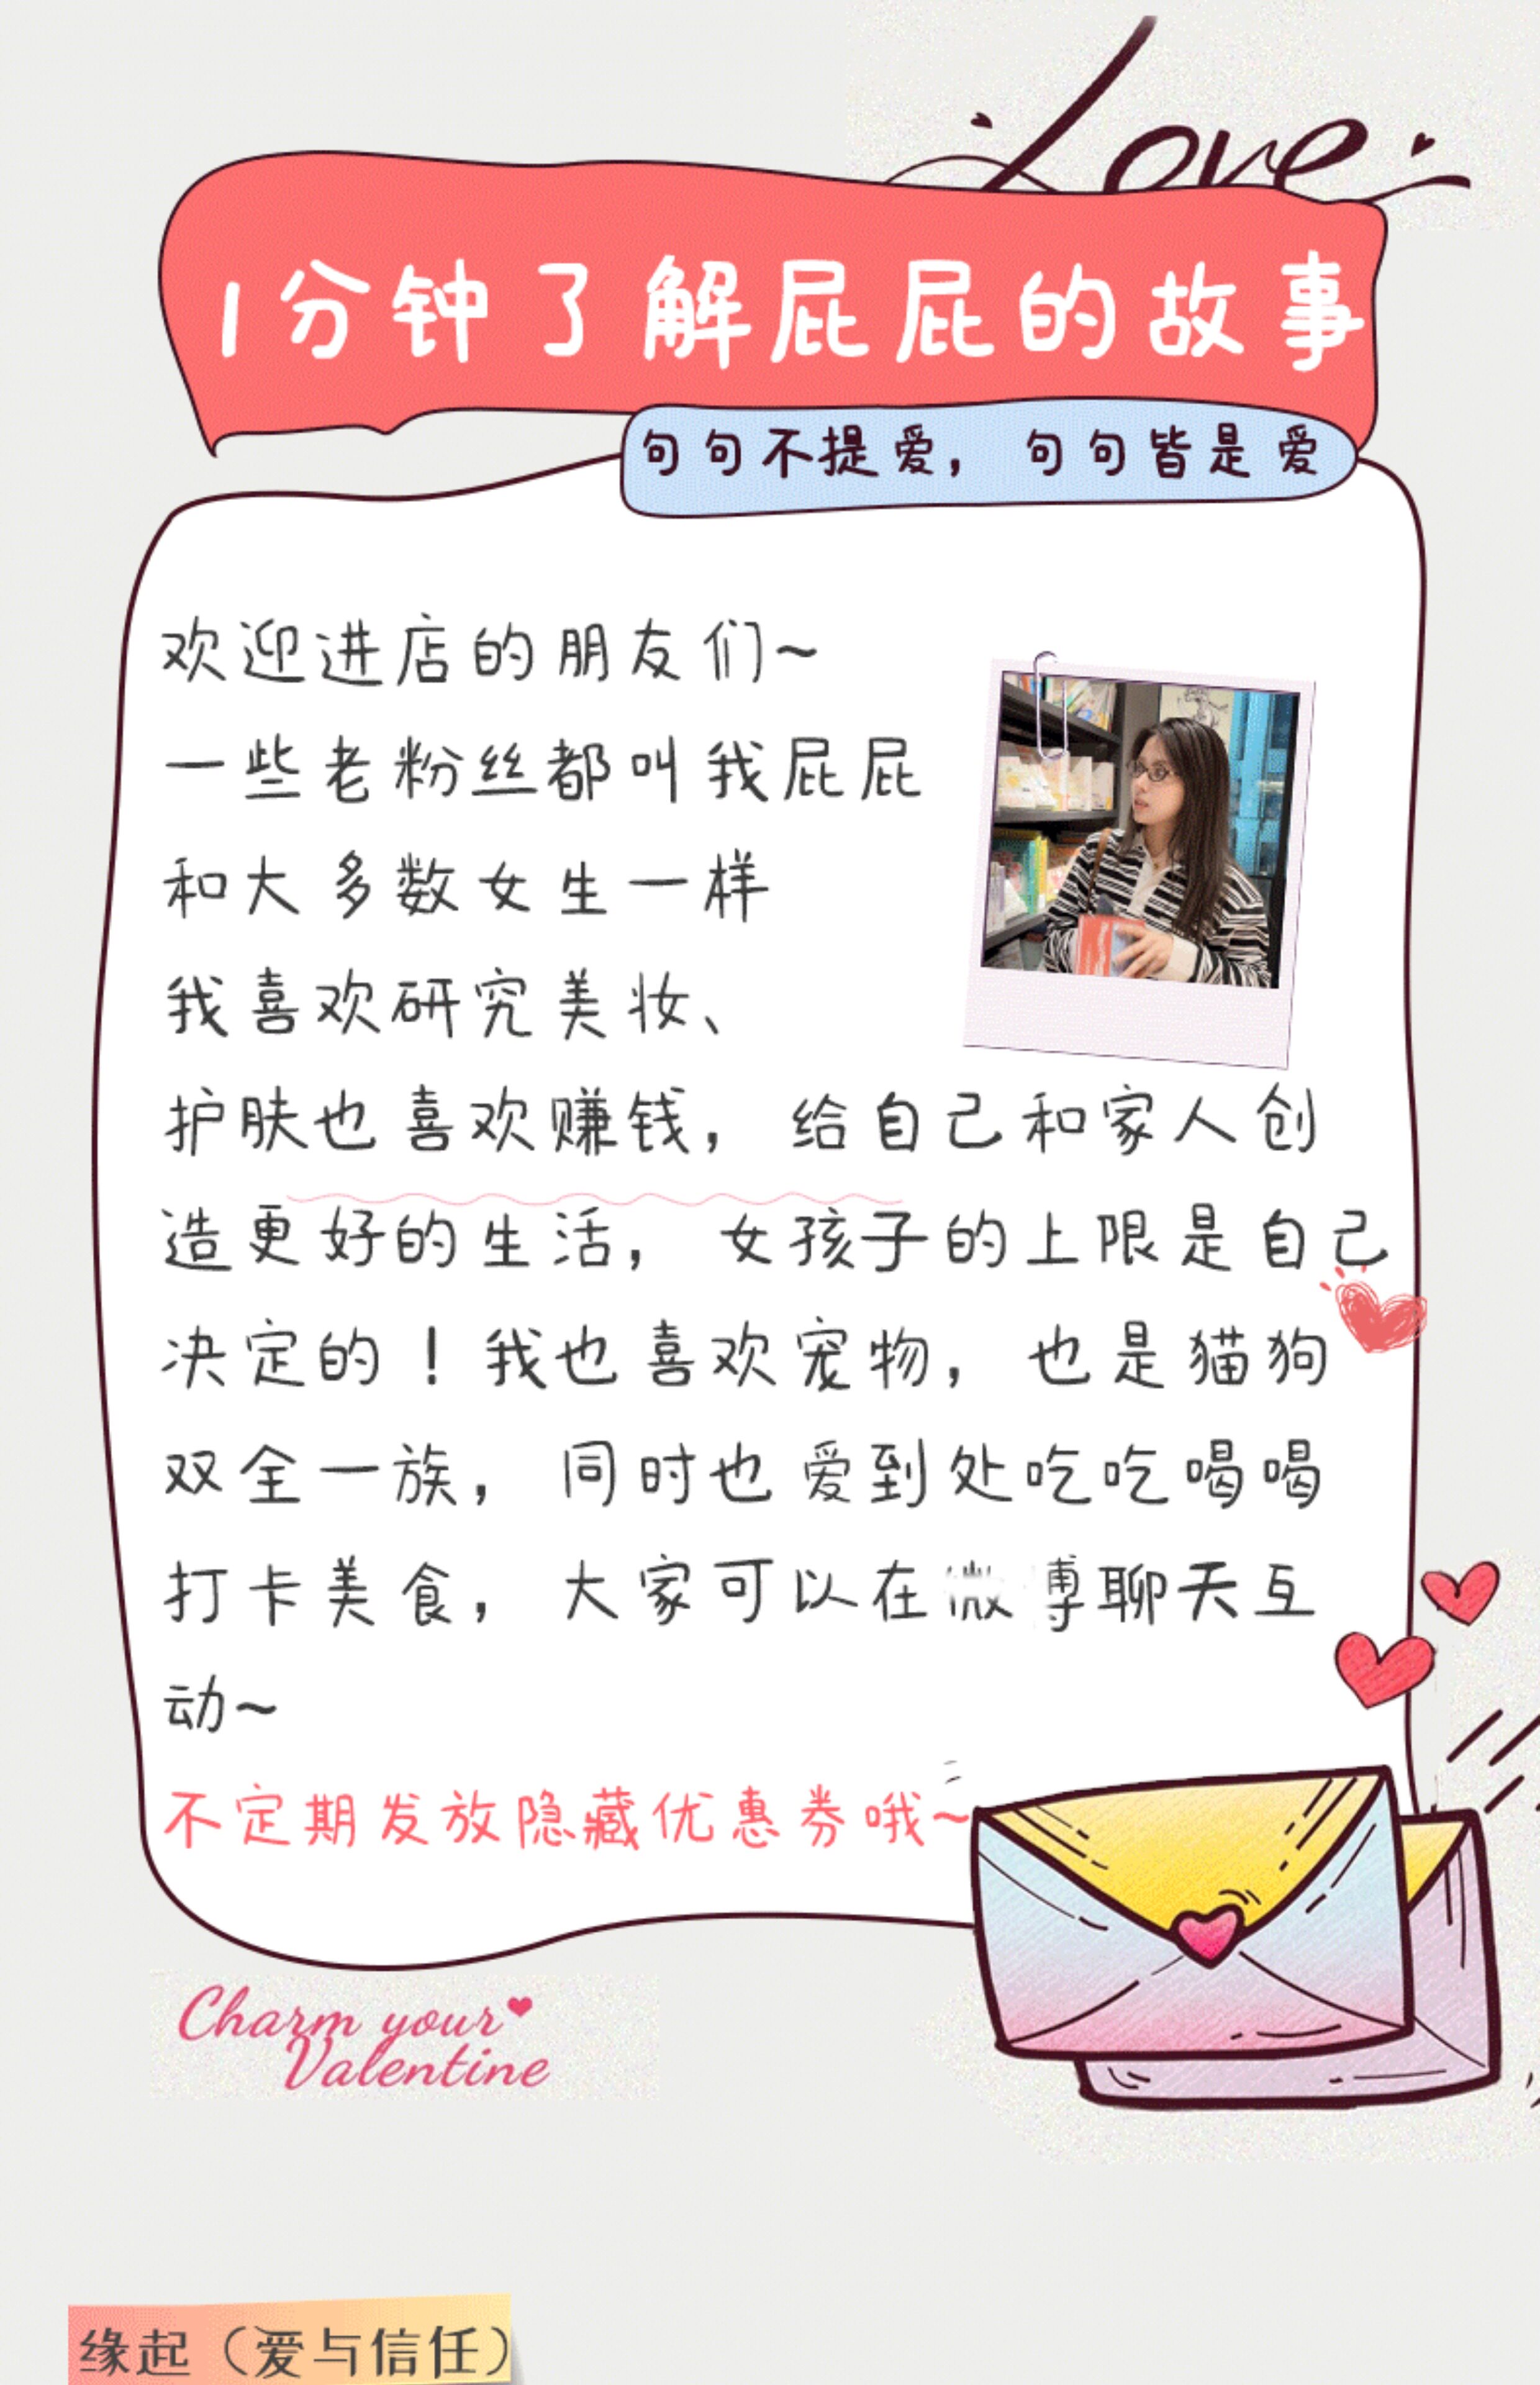 Love
1分钟了解屁屁的故事
句句不提爱，句句皆是爱
欢迎进店的朋友们~
一些老粉丝都叫我屁屁
和大多数女生一样
我喜欢研究美妆、
护肤也喜欢赚钱，给自己和家人创
造更好的生活，女孩子的上限是自己
决定的！我也喜欢宠物，也是猫狗
双全一族，同时也爱到处吃吃喝喝
打卡美食，大家可以在微博聊天互
动~
不定期发放隐藏优惠券哦~
Charm your
Valentine
缘起（爱与信任）